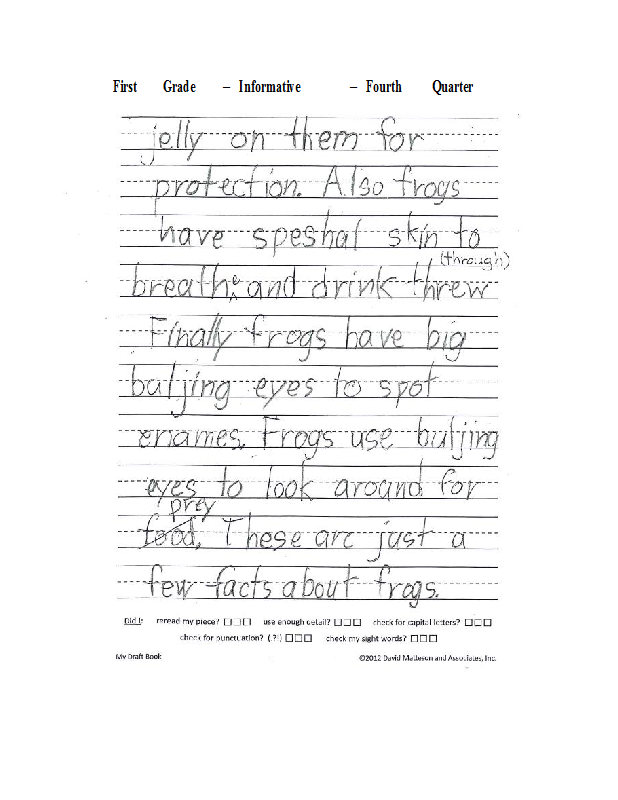 First Grade – Informative – Fourth Quarter
jelly on them for
protection. Also frogs
have speshal skin to
(through)
breathe and drink threw
Finally frogs have big
buljing eyes to spot
enames. Frogs use buljing
eyes to look around for
prey
food. These are just a
few facts about frogs.
Did I: reread my piece? □□□ use enough detail? □□□ check for capital letters? □□□
check for punctuation? (.?!) □□□ check my sight words? □□□
My Draft Book ©2012 David Matteson and Associates, Inc.